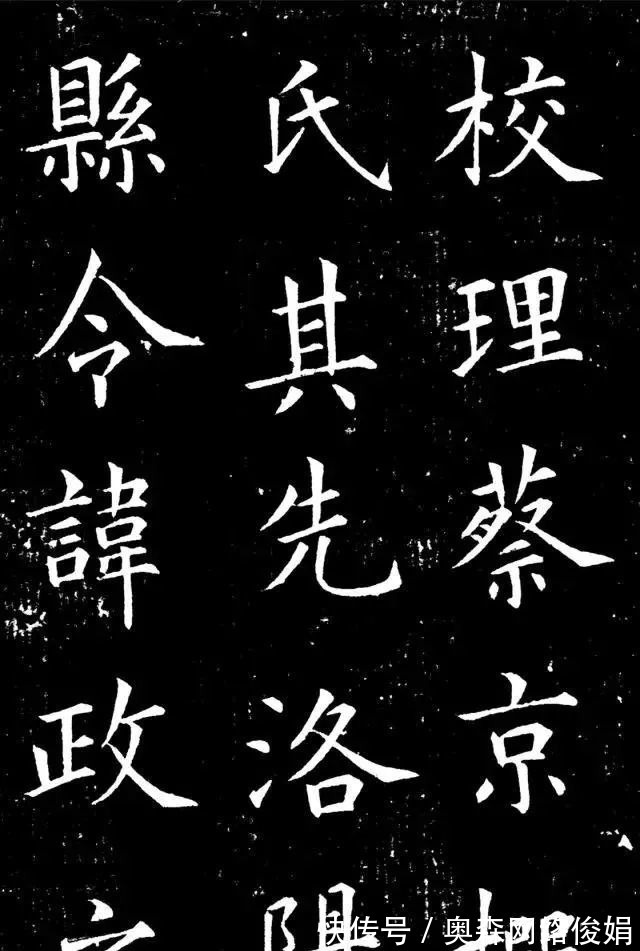 校理蔡京
氏其先洛陽
縣令諱政
快传号/奥森网络俊娟